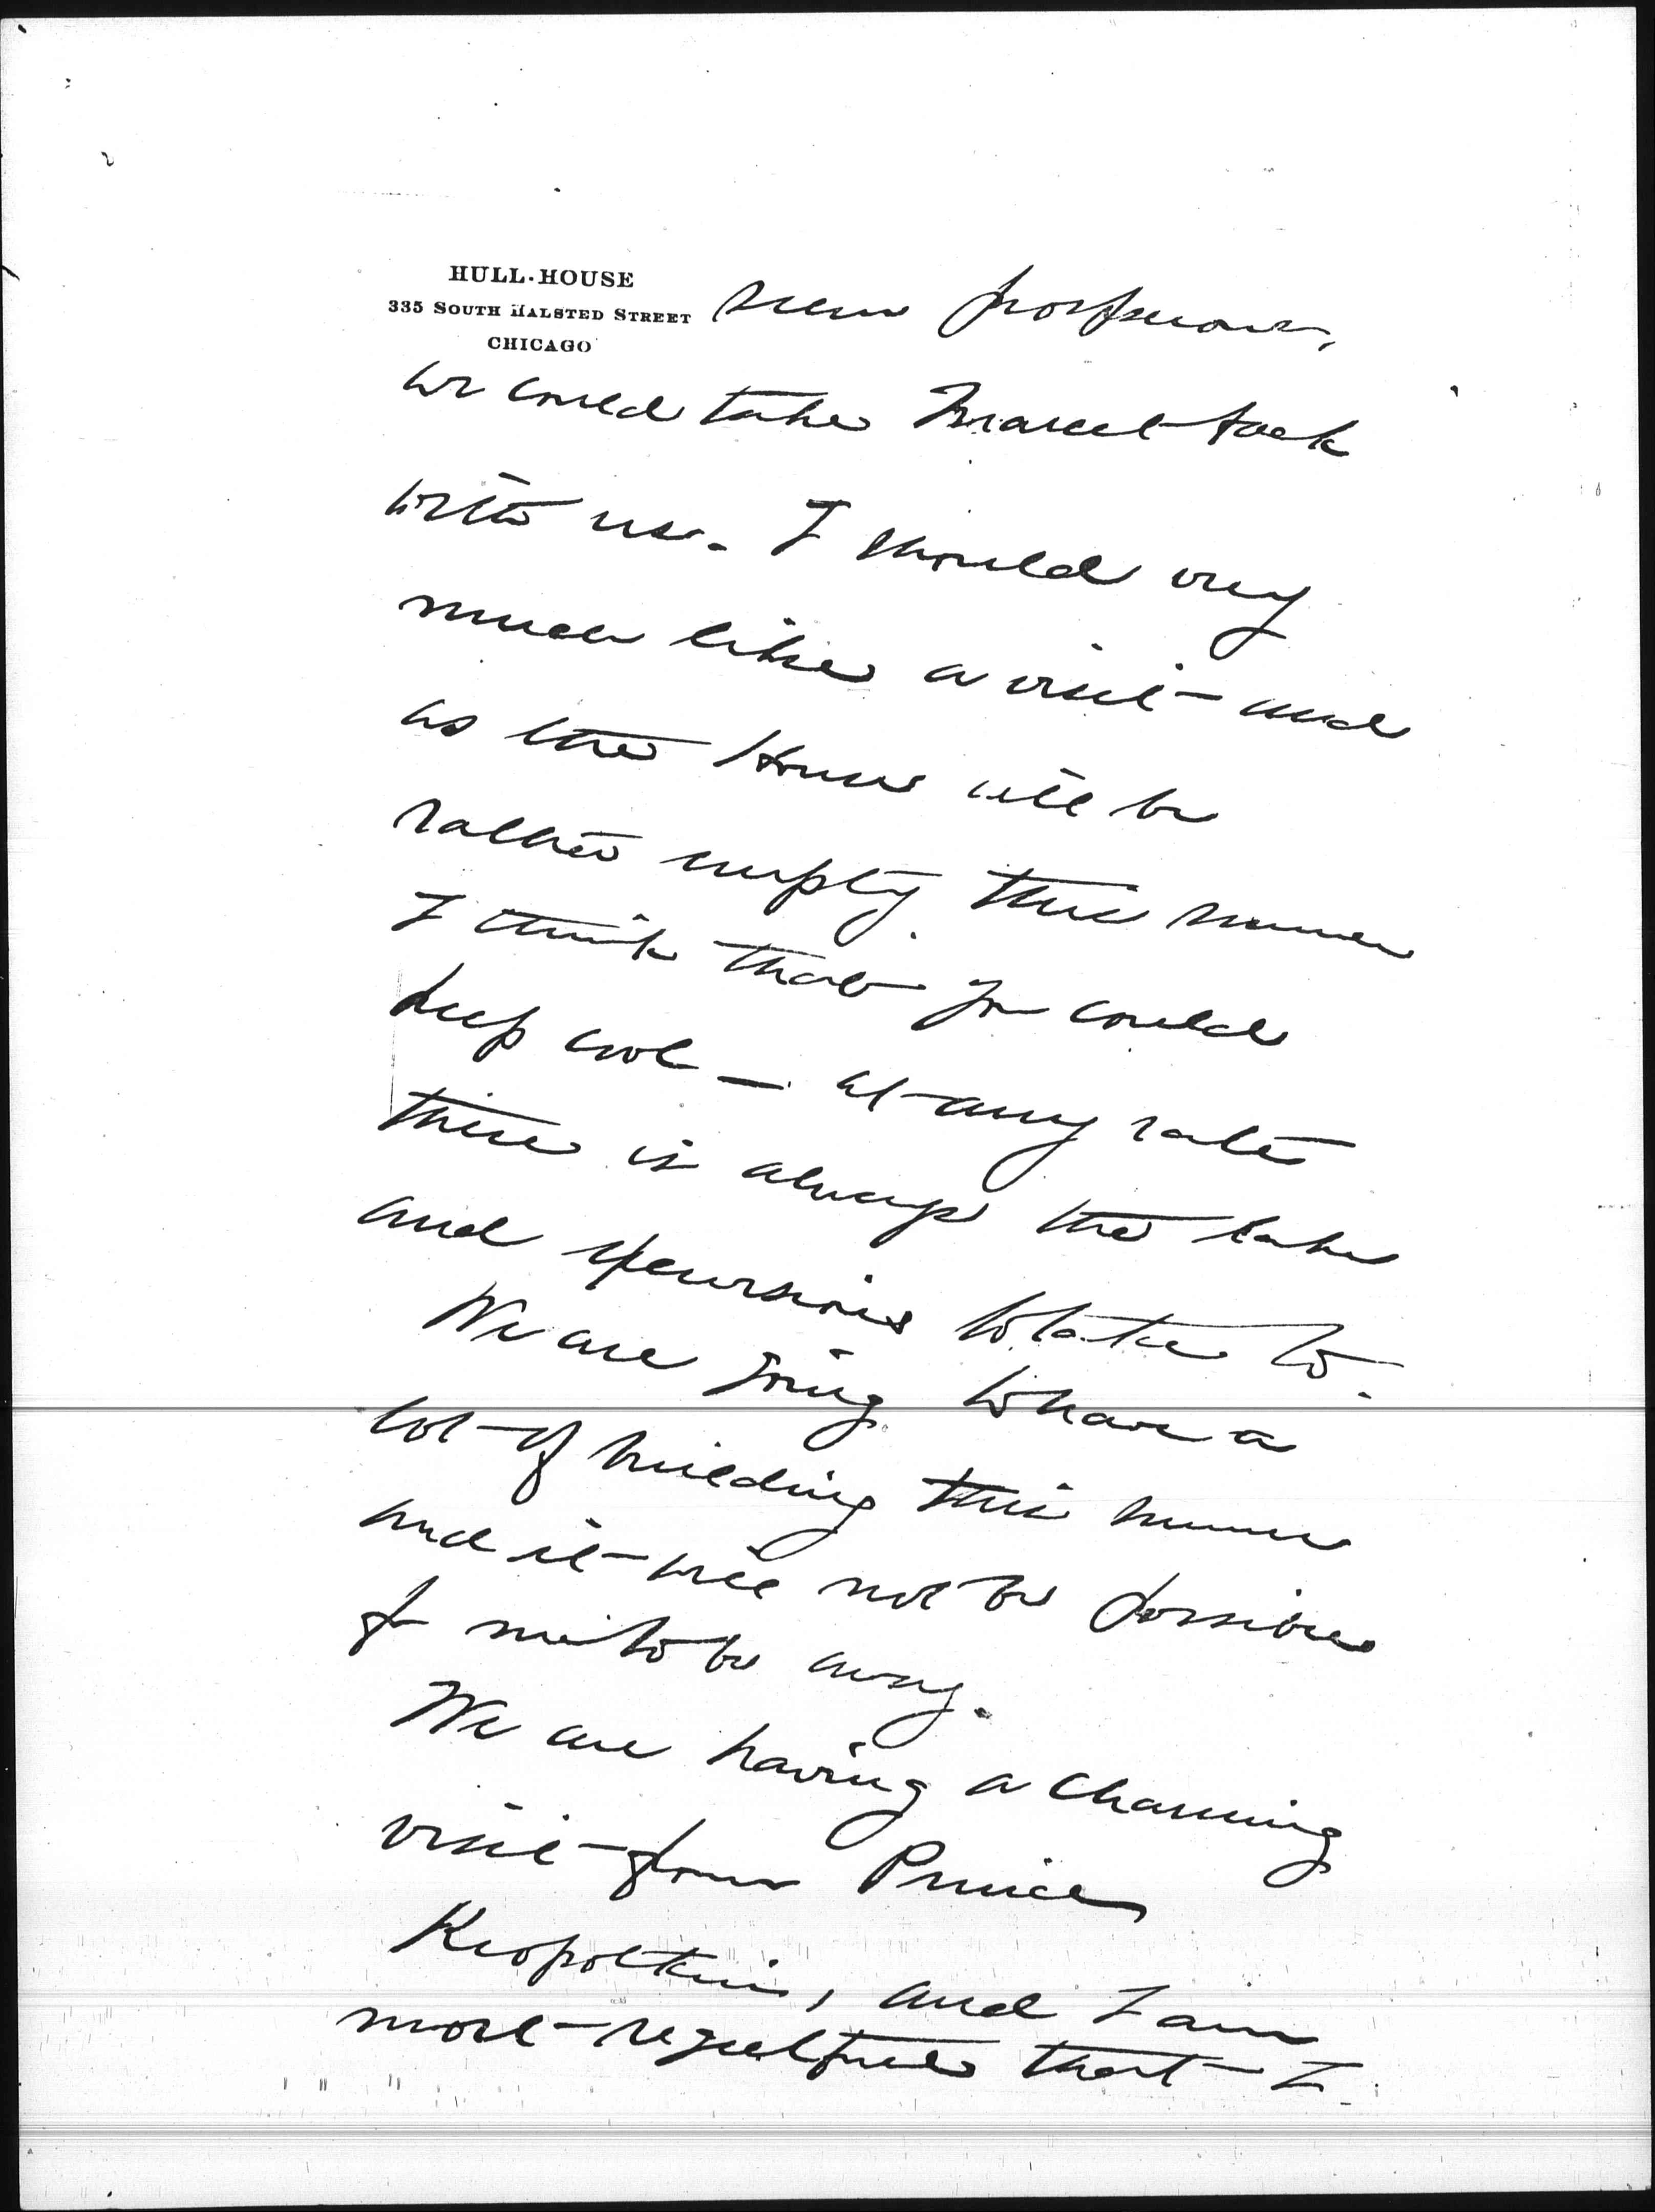 HULL-HOUSE
335 SOUTH HALSTED STREET
CHICAGO
seem
we could take Marcet back
with us. I should very
much like a visit – and
as the House will be
rather empty this summer
I think that you could
keep cool – at any rate
there is always the lake
and excursions to take to.
We are going to have a
lot of building this summer
and it will not be possible
for me to be away.
We are having a charming
visit from Prince
Kropotkin, and I am
most regretful that I